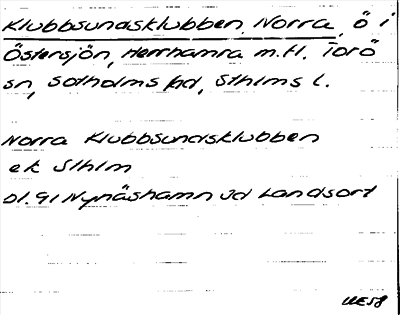 Klubbsundsklubben, Norra, ö i
Östersjön, Herrhamra m.fl. Torö
sn, Sotholms hd, Sthlms l.
Norra Klubbsundsklubben
ek Sthlm
bl. 91 Nynäshamn Sd Landsort
UE58